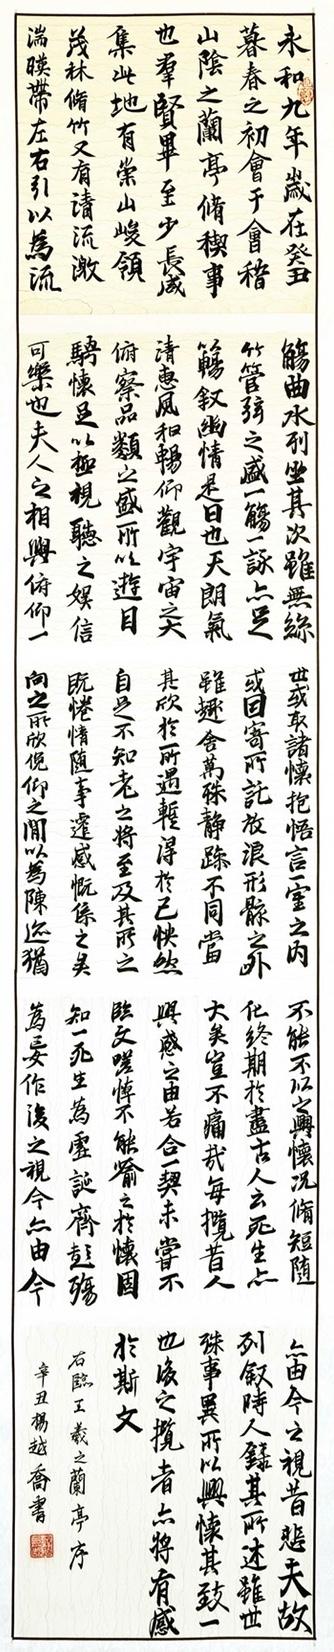 永和九年歲在癸丑
暮春之初會于會稽
山陰之蘭亭脩稧事
也羣賢畢至少長咸
集此地有崇山峻領
茂林脩竹又有清流激
湍暎帶左右引以為流
觴曲水列坐其次雖無絲
竹管弦之盛一觴一詠亦足
以暢敘幽情是日也天朗氣
清惠風和暢仰觀宇宙之大
俯察品類之盛所以遊目
騁懷足以極視聽之娛信
可樂也夫人之相與俯仰一
世或取諸懷抱悟言一室之內
或因寄所託放浪形骸之外
雖趣舍萬殊靜躁不同當
其欣於所遇暫得於己怏然
自足不知老之將至及其所之
既惓情隨事遷感慨係之矣
向之所欣俛仰之間以為陳迹猶
不能不以之興懷況脩短隨
化終期於盡古人云死生亦
大矣豈不痛哉每攬昔人
興感之由若合一契未嘗不
臨文嗟悼不能喻之於懷固
知一死生為虛誕齊彭殤
為妄作後之視今亦由今
亦由今之視昔悲夫故
列敘時人錄其所述雖世
殊事異所以興懷其致一
也後之攬者亦將有感
於斯文
右臨王羲之蘭亭序
辛丑楊越喬書